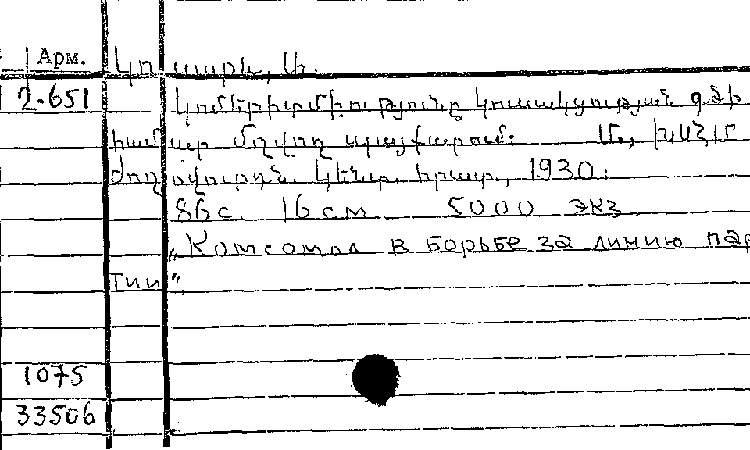 Арм. Կոսարև, Ա.
2-651 Կոմերիտմիությունը կուսակցության գծի
համար մղվող պայքարում: Մ., ԽՍՀՄ
ժողովուրդն. կենտր. հրատ., 1930:
86с. 16см 5000 экз
„Комсомол в борьбе за линию пар
тии“.
1075
33506